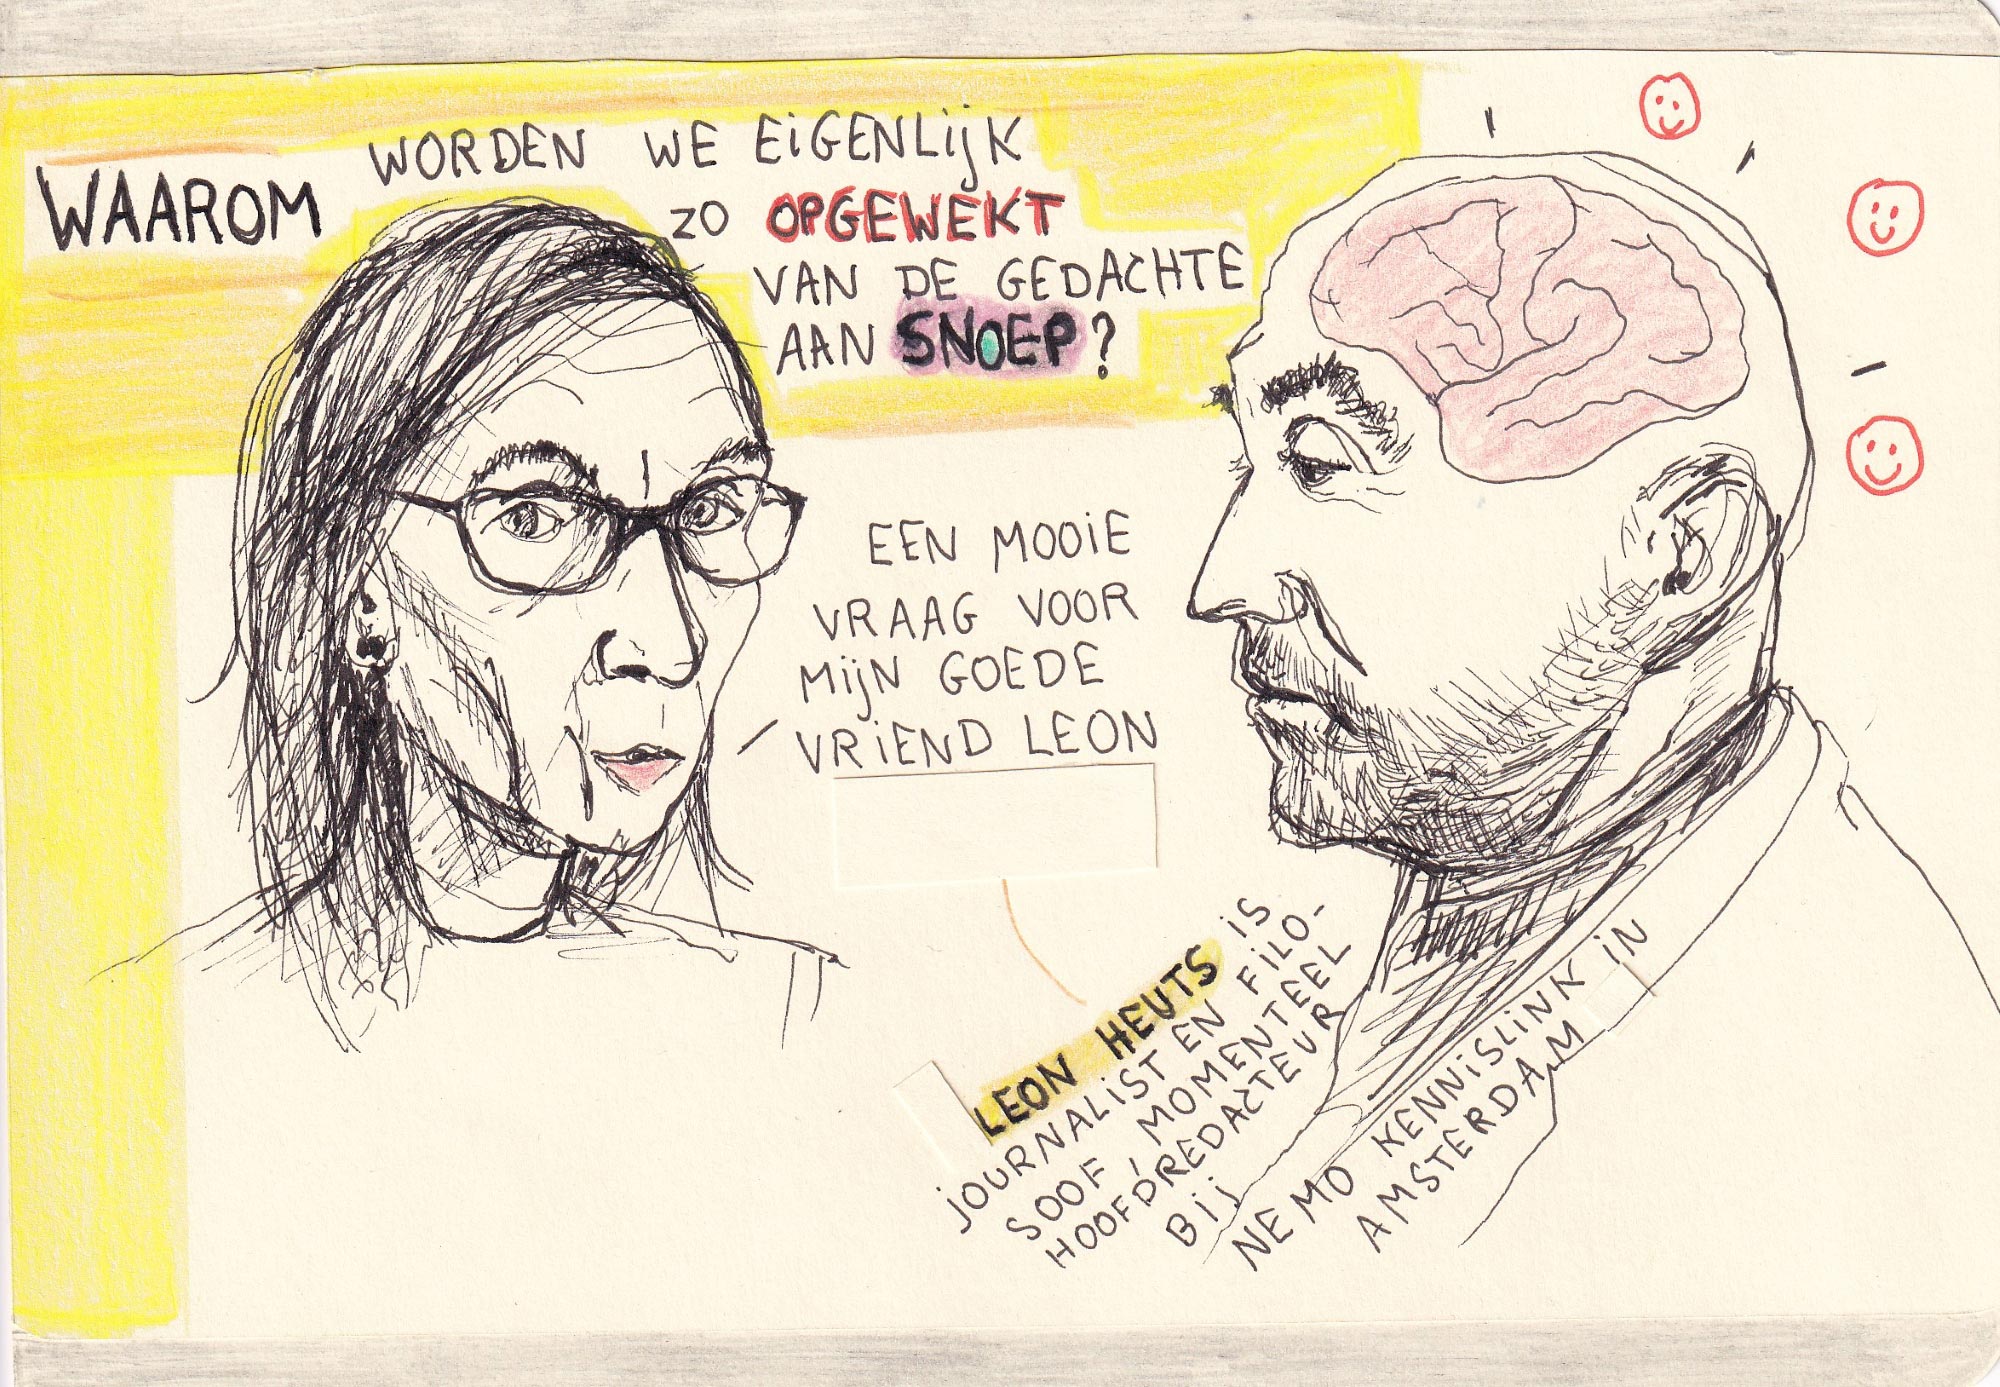 WAAROM WORDEN WE EIGENLIJK
ZO OPGEWEKT
VAN DE GEDACHTE
AAN SNOEP?
EEN MOOIE
VRAAG VOOR
MIJN GOEDE
VRIEND LEON
LEON HEUTS IS
JOURNALIST EN FILO-
SOOF, MOMENTEEL
HOOFDREDACTEUR
BIJ
NEMO KENNISLINK IN
AMSTERDAM